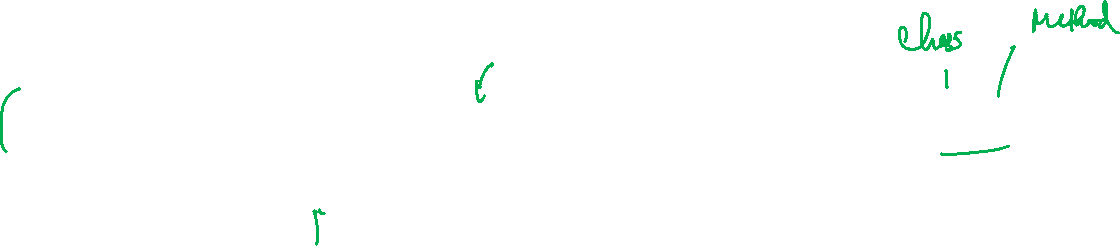 Class
Method